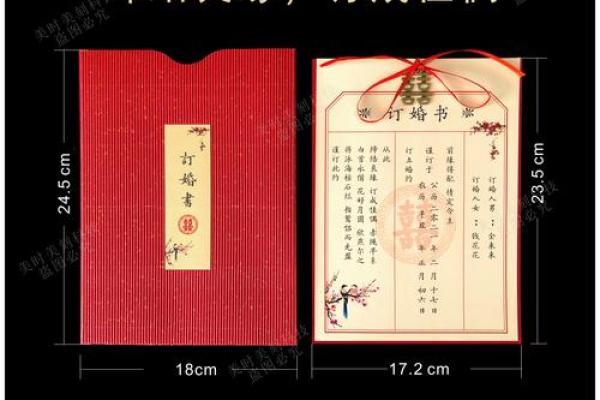 美时美刻科技
盗图必究
24.5 cm
订婚书
囍
18cm
囍
订婚书
订婚人男：金来来
订婚人女：钱花花
前缘得配 情定今生
谨订于
公历 二〇二一年 二月十七日
农历 辛丑 年 正月 初六日
订立婚约
从此
缔结良缘 订成佳偶 赤绳早系
白首永偕 花好月圆 欣燕尔之
将泳海枯石烂 指鸳侣而先盟
谨订此约
囍
23.5 cm
17.2 cm